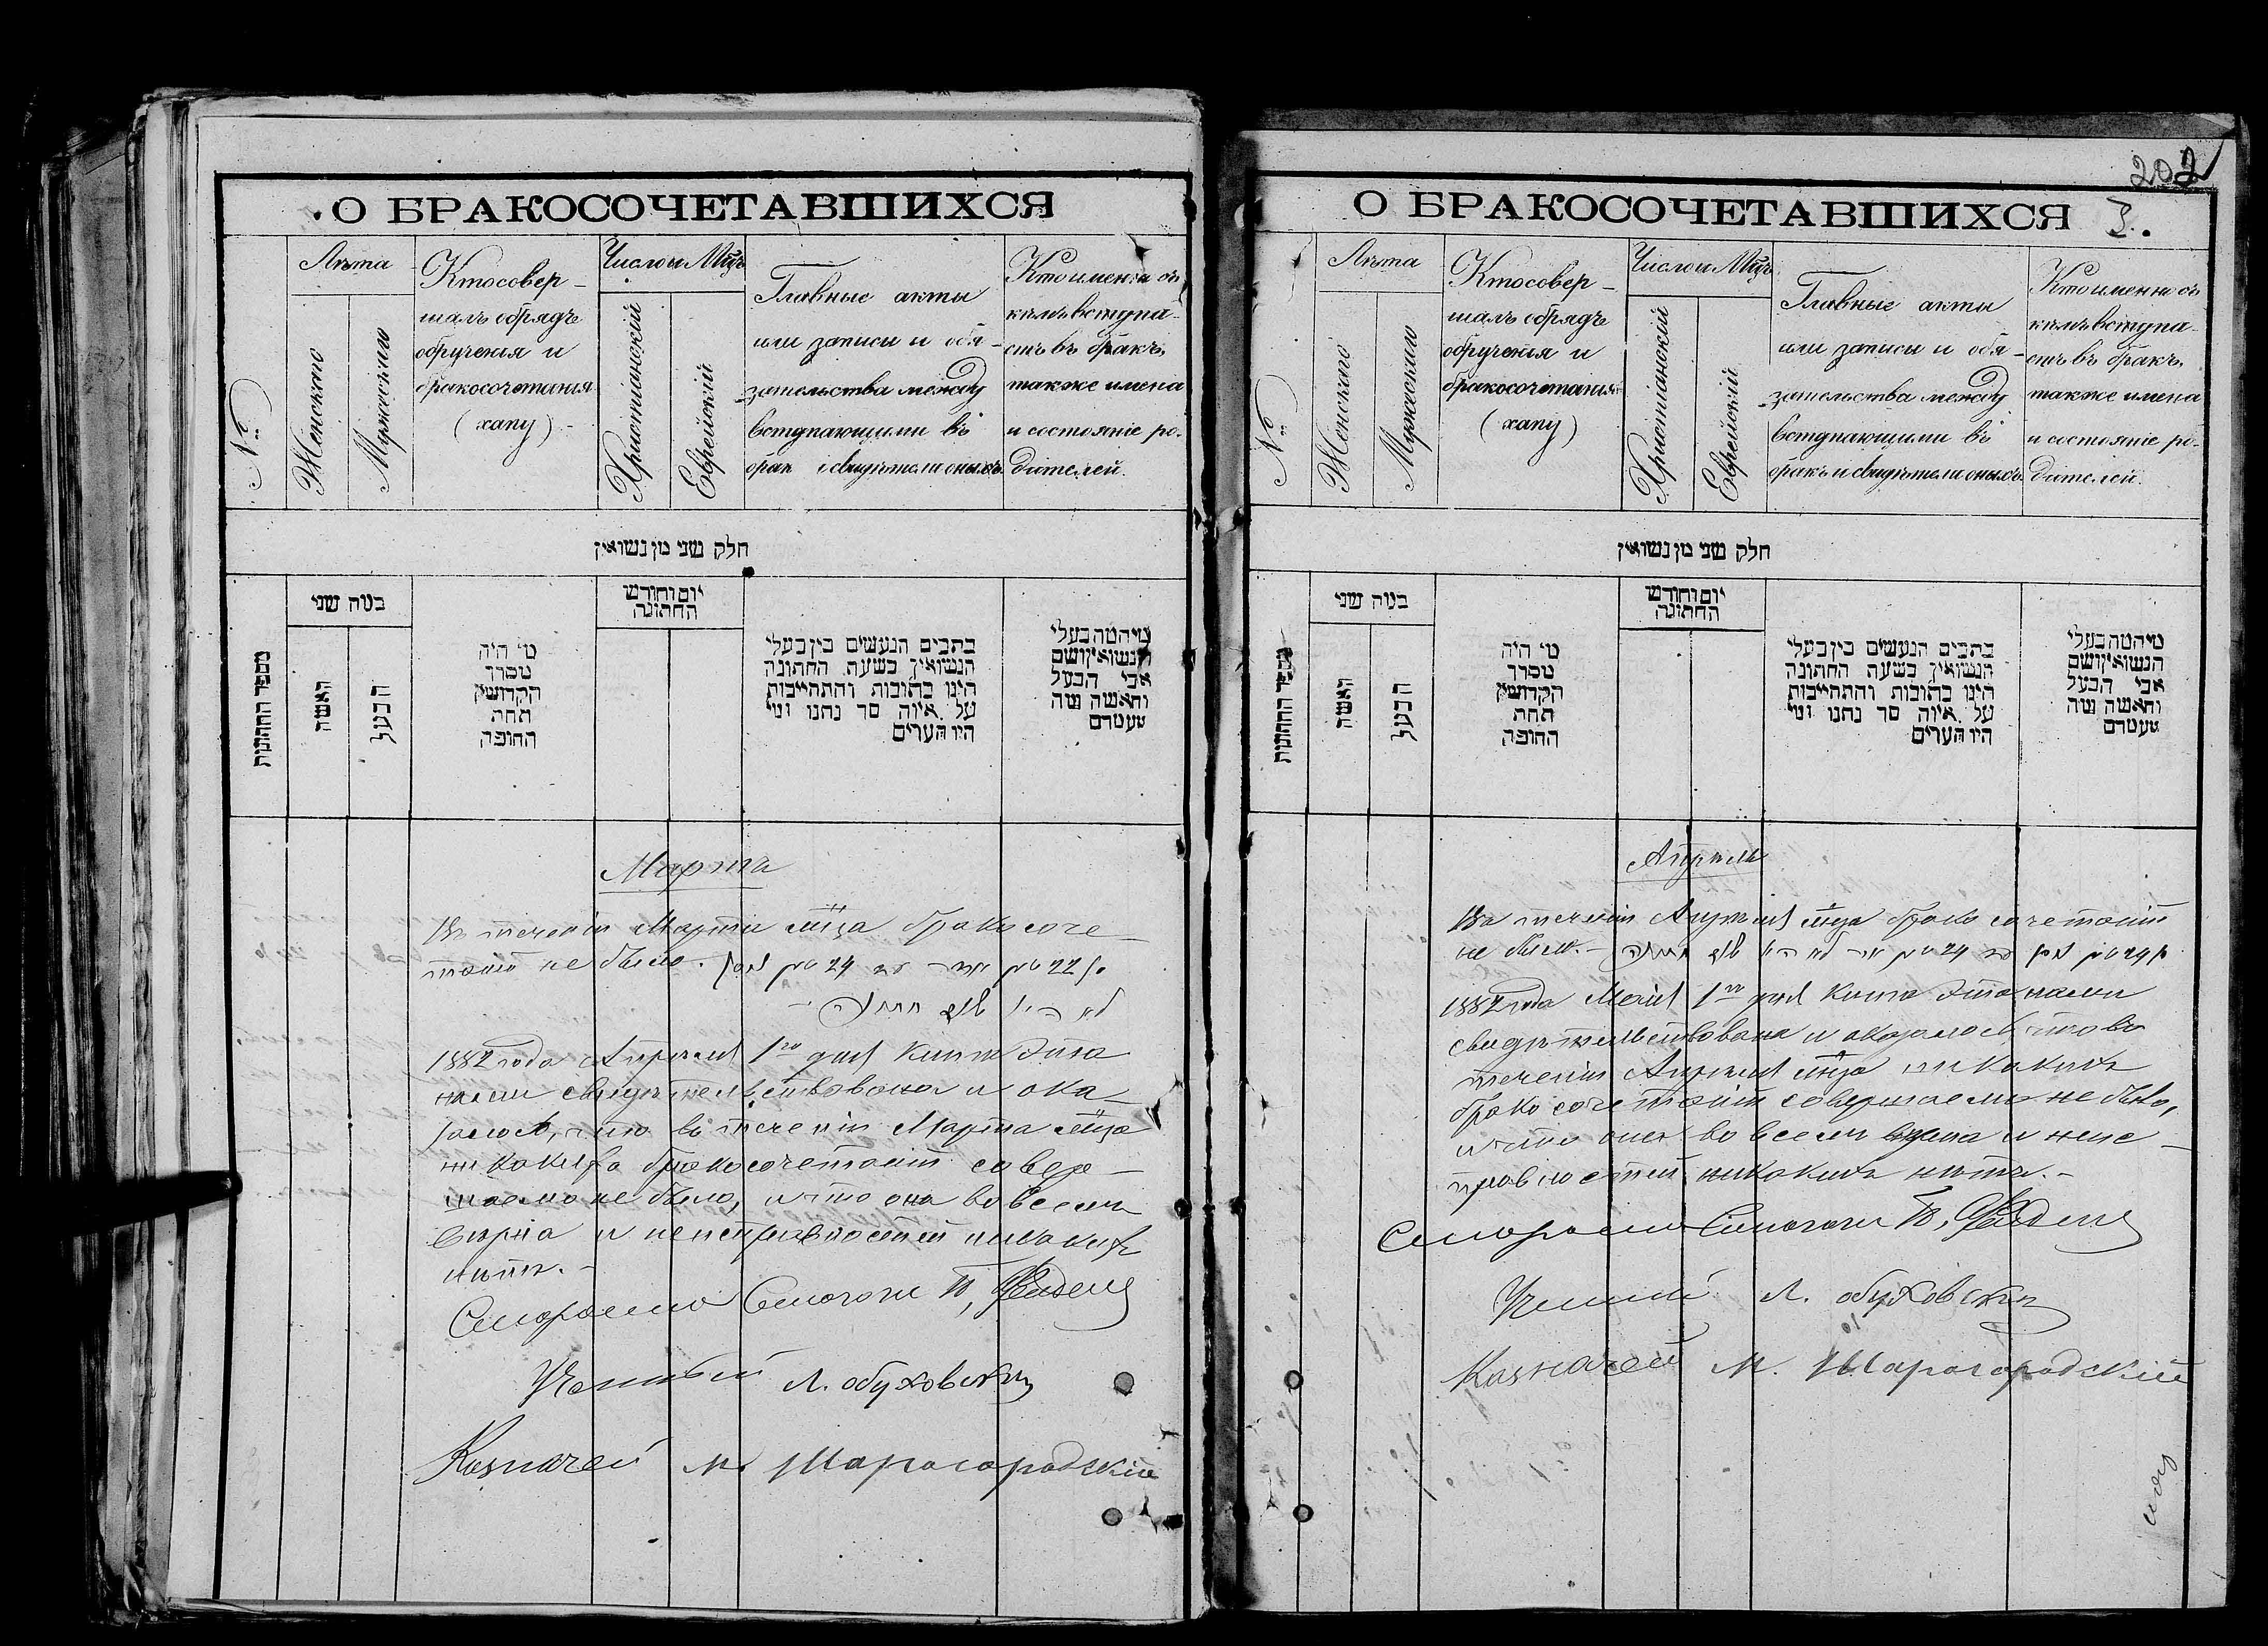 О БРАКОСОЧЕТАВШИХСЯ
№
Лѣта
Женскаго
Мужескаго
Кто совер-
шалъ обрядъ
обрученія и
бракосочетанія
(хапу)
Число и Мцъ
Христіанскій
Еврейскій
Главные акты
или записи и обя-
зательства между
вступающими въ
брак и свидѣтели оныхъ.
Кто именно съ
кѣмъ вступа-
етъ въ бракъ,
также имена
и состояніе ро-
дителей.
חלק שני מן נשואין
מספר החתונות
כמה שני
האשה
הבעל
מי היה
מסדר
הקדושין
תחת
החופה
יום וחודש
החתונה
כתבים הנעשים בין בעלי
הנשואין בשעת החתונה
היינו כתובות והתחייבות
על איזה סך נתנו ומי
היו העדים
מי המה בעלי
הנשואין ושם
אבי הבעל
והאשה ומה
מעמדם
Марта
Въ теченіи Марта мца бракосоче-
таній не было.
1882 года Апрѣля 1го дня книга эта
нами свидѣтельствована и ока-
залось, что въ теченіи Марта мца
никакихъ бракосочетаній совер-
шаемо не было, и что она во всемъ
вѣрна и неисправностей никакихъ
нѣтъ.-
Староста Синагоги
Ученый Л. Обуховскій
Казначей М. Шарогородскій
202
О БРАКОСОЧЕТАВШИХСЯ 3.
№
Лѣта
Женскаго
Мужескаго
Кто совер-
шалъ обрядъ
обрученія и
бракосочетанія
(хапу)
Число и Мцъ
Христіанскій
Еврейскій
Главные акты
или записи и обя-
зательства между
вступающими въ
бракъ и свидѣтели оныхъ.
Кто именно съ
кѣмъ вступа-
етъ въ бракъ,
также имена
и состояніе ро-
дителей.
חלק שני מן נשואין
מספר החתונות
כמה שני
האשה
הבעל
מי היה
מסדר
הקדושין
תחת
החופה
יום וחודש
החתונה
כתבים הנעשים בין בעלי
הנשואין בשעת החתונה
היינו כתובות והתחייבות
על איזה סך נתנו ומי
היו העדים
מי המה בעלי
הנשואין ושם
אבי הבעל
והאשה ומה
מעמדם
Апрѣль
Въ теченіи Апрѣля мца бракосочетаній
не было.-
1882 года Маія 1го дня книга эта нами
свидѣтельствована и оказалось что въ
теченіи Апрѣля мца никакихъ
бракосочетаній совершаемо не было,
и что она во всемъ вѣрна и неис-
правностей никакихъ нѣтъ.-
Староста Синагоги
Ученый Л. Обуховскій
Казначей М. Шарогородскій